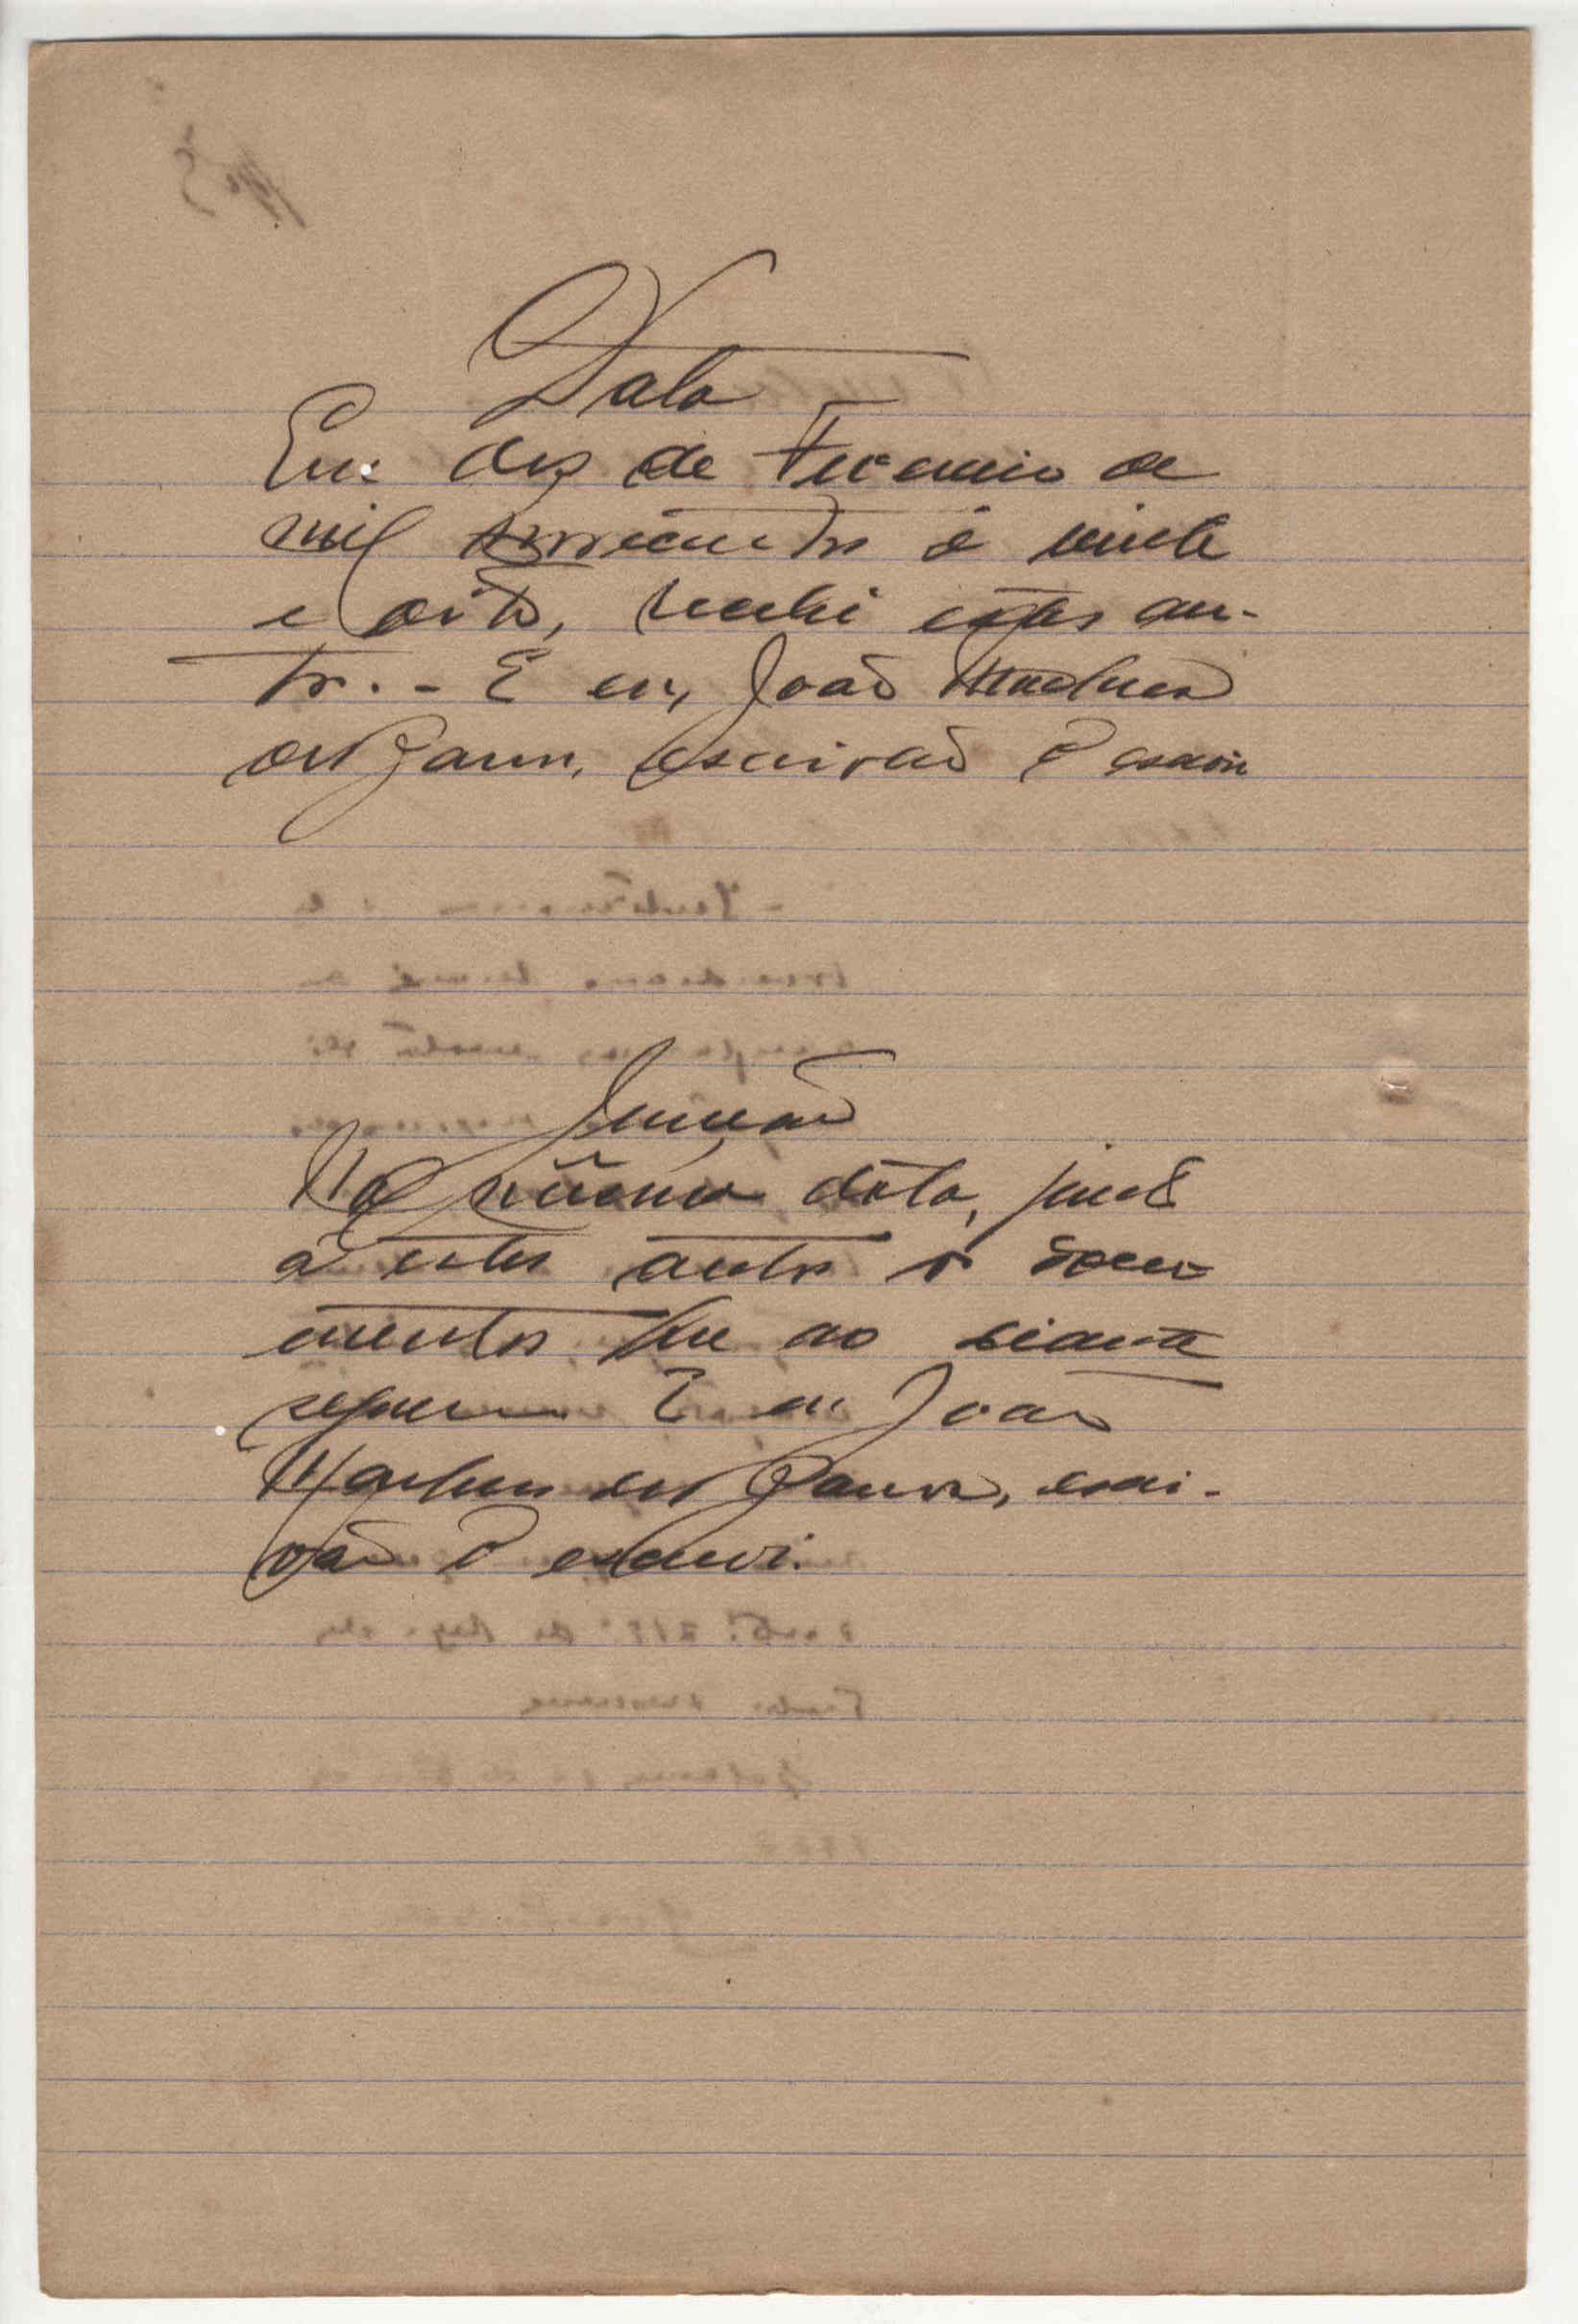 Data
Em dez de Fevereiro de
mil novecentos e vinte
e oito, recebi estes au-
tos. - E eu, João Machado
dos, escrivão o escrevi
Junção
Na mesma data, junto
a estes autos os docu-
mentos que ao diante
seguem E eu João
dos, escri-
vão o escrevi.